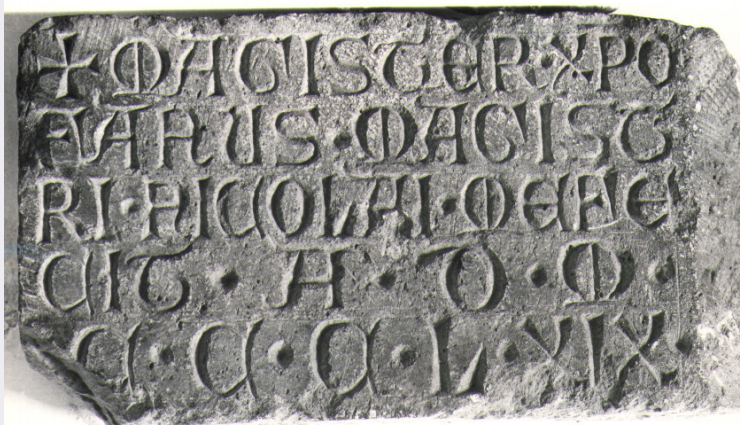 + MAGISTER · XPO
FANUS · MAGIST
RI · NICOLAI · ME FE
CIT · A · D · M ·
C · C · C · L · XIX ·